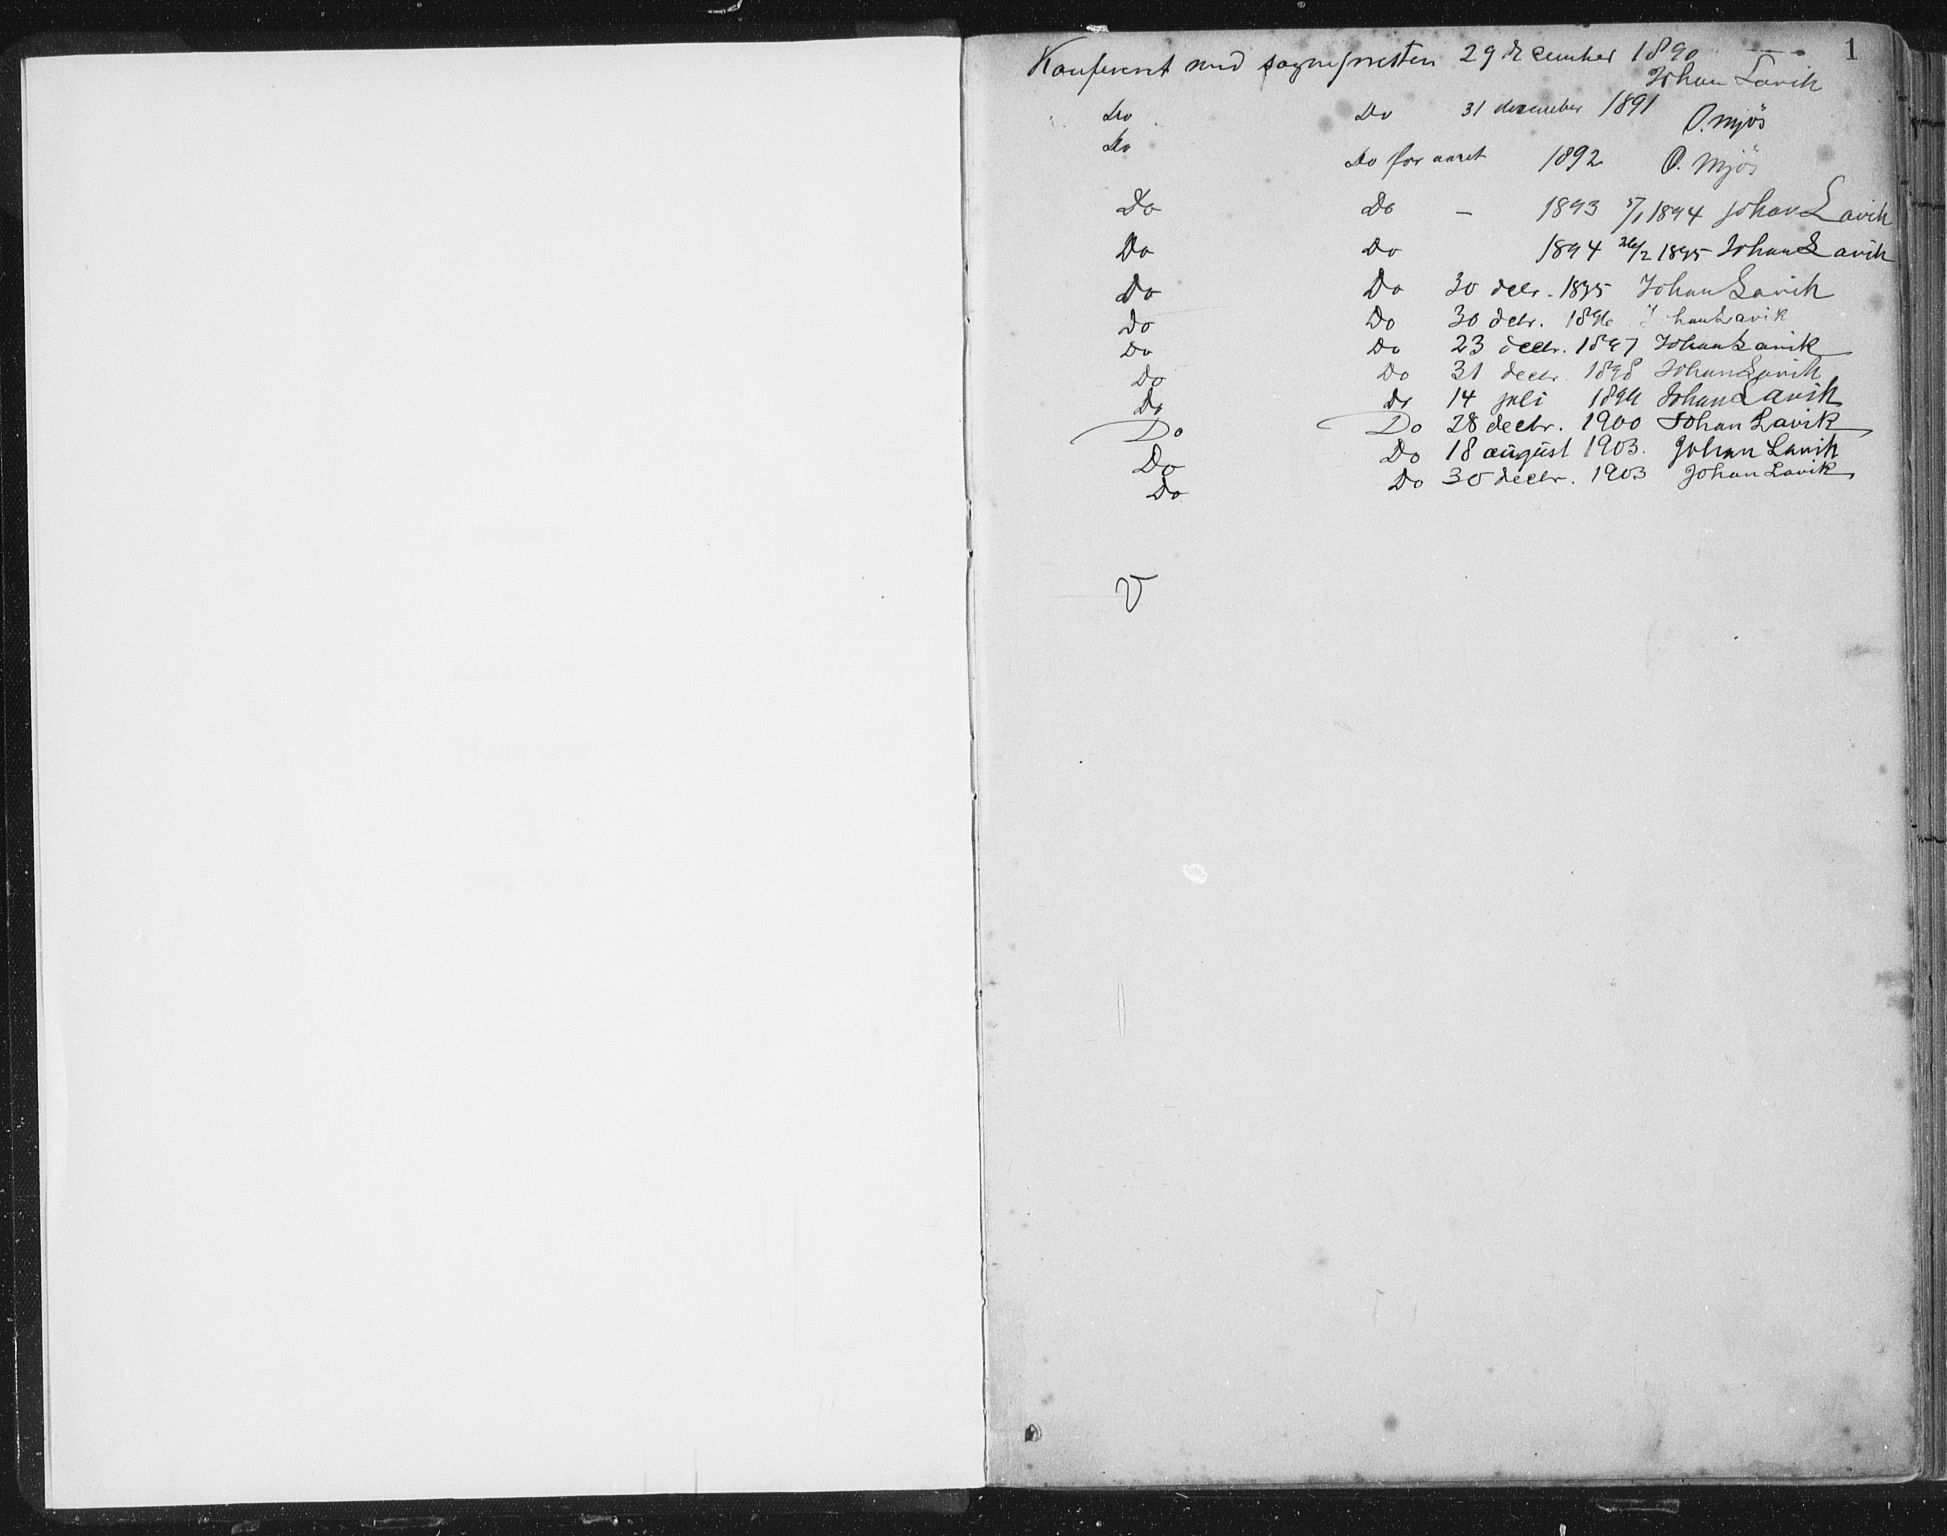 1
Konferert med sognepresten 29 december 1890
Johan Lavik
Do Do 31 december 1891 O. Mjös
Do Do for aaret 1892 O. Mjös
Do Do – 1893 1894 Johan Lavik
Do Do 1894 26/2 1895 Johan Lavik
Do Do 30 decbr. 1895 Johan Lavik
Do Do 30 decbr. 1896 Johan Lavik
Do Do 23 decbr. 1897 Johan Lavik
Do Do 31 decbr. 1898 Johan Lavik
Do Do 14 juli 1899 Johan Lavik
Do Do 28 decbr. 1900 Johan Lavik
Do Do 18 august 1903. Johan Lavik
Do Do 30 decbr. 1903 Johan Lavik
V